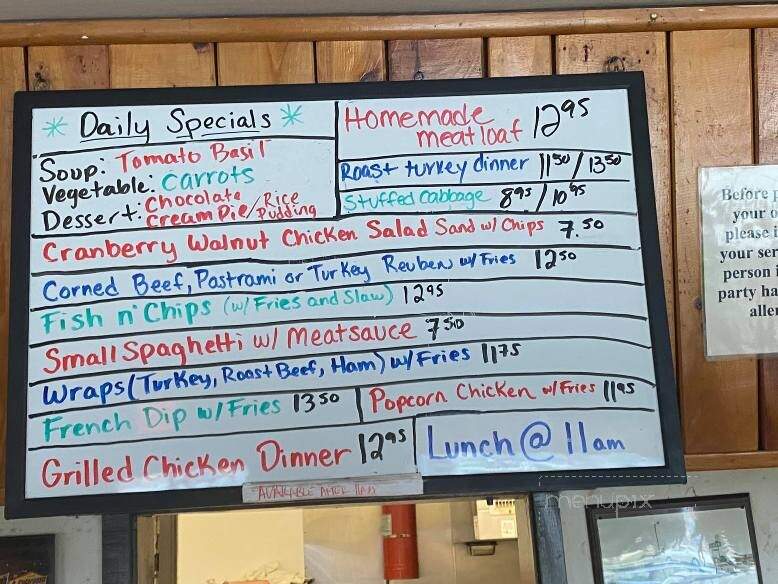 * Daily Specials *
Soup: Tomato Basil
Vegetable: Carrots
Dessert: Chocolate Cream Pie/Rice Pudding
Homemade
meatloaf 12 95
Roast turkey dinner 11 50 / 13 50
Stuffed Cabbage 8 95 / 10 95
Cranberry Walnut Chicken Salad Sand w/ Chips 7.50
Corned Beef, Pastrami or Turkey Reuben w/ Fries 12 50
Fish n' Chips (w/ Fries and Slaw) 12 95
Small Spaghetti w/ Meatsauce 7 50
Wraps (Turkey, Roast Beef, Ham) w/ Fries 11 75
French Dip w/ Fries 13 50
Popcorn Chicken w/ Fries 11 95
Grilled Chicken Dinner 12 95
Lunch @ 11am
AVAILABLE AFTER 11AM
Before
your
please
your ser
person
party ha
aller
menupix